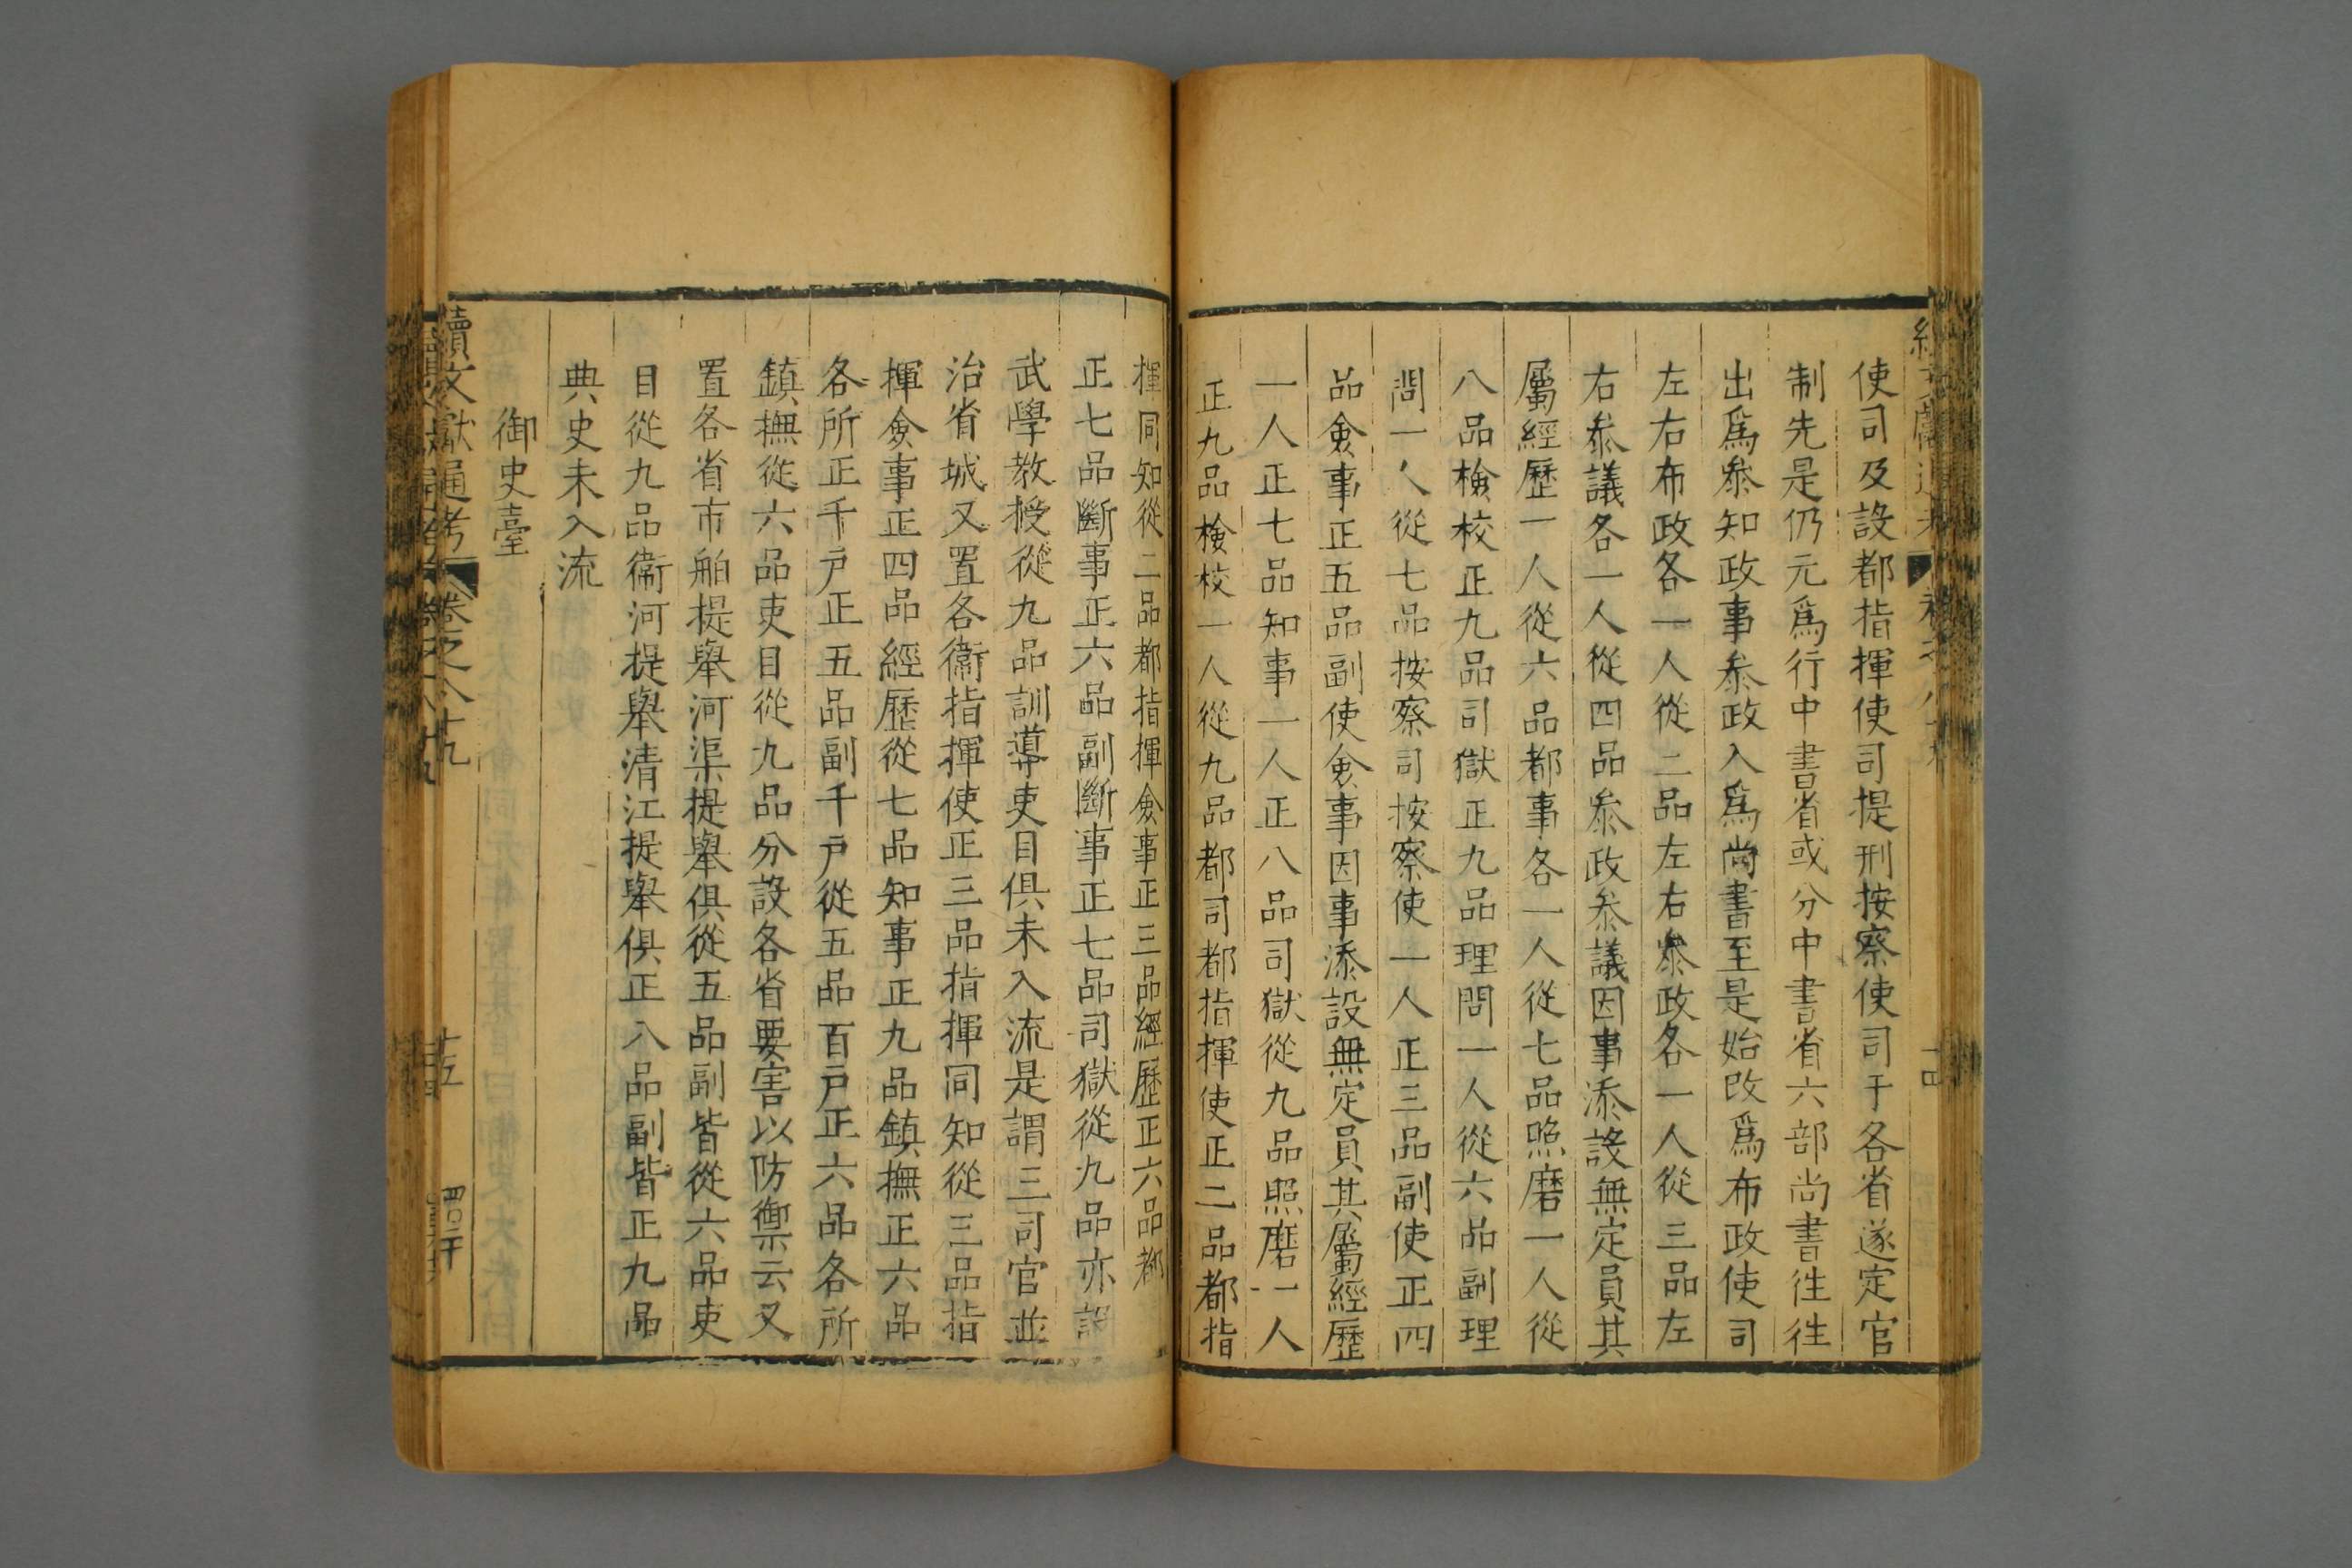 使司及設都指揮使司提刑按察使司于各省遂定官
制先是仍元爲行中書省或分中書省六部尚書徃徃
出爲叅知政事叅政入爲尚書至是始改爲布政使司
左右布政各一人從二品左右叅政各一人從三品左
右叅議各一人從四品叅政叅議因事添設無定員其
屬經歷一人從六品都事各一人從七品照磨一人從
八品檢校正九品司獄正九品理問一人從六品副理
問一人從七品按察司按察使一人正三品副使正四
品僉事正五品副使僉事因事添設無定員其屬經歷
一人正七品知事一人正八品司獄從九品照磨一人
正九品檢校一人從九品都司都指揮使正二品都指
揮同知從二品都指揮僉事正三品經歷正六品都
正七品斷事正六品副斷事正七品司獄從九品亦設
武學教授從九品訓導吏目俱未入流是謂三司官並
治省城又置各衛指揮使正三品指揮同知從三品指
揮僉事正四品經歷從七品知事正九品鎮撫正六品
各所正千戸正五品副千戸從五品百戸正六品各所
鎮撫從六品吏目從九品分設各省要害以防禦云又
置各省市舶提舉河渠提舉俱從五品副皆從六品吏
目從九品衛河提舉清江提舉俱正八品副皆正九品
典史未入流
御史臺
續文獻通考 卷之八十九 十五